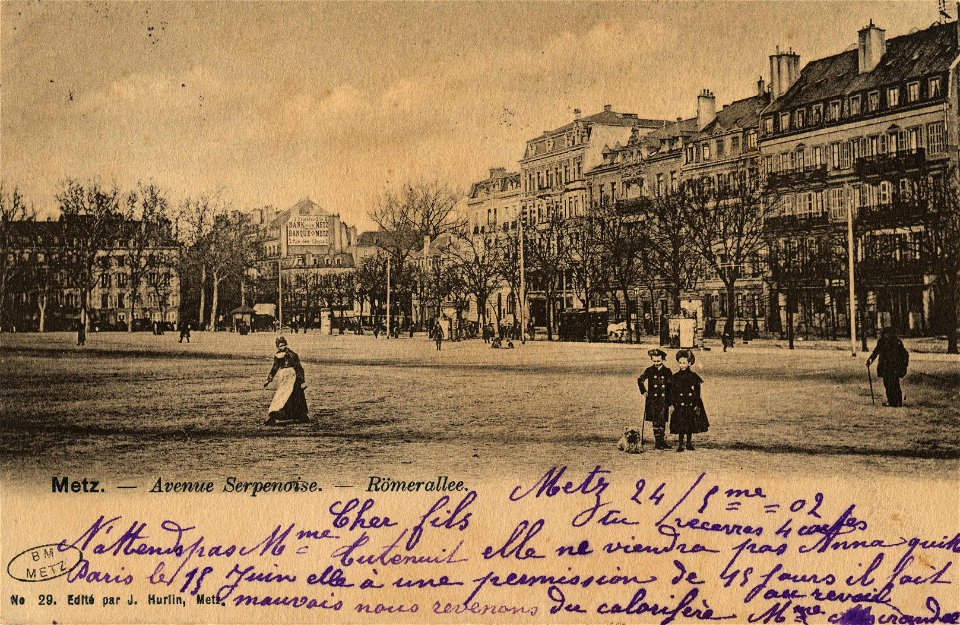 BANK VON METZ
BANQUE DE METZ
Metz. — Avenue Serpenoise. — Römerallee.
Metz 24/5me=02
Cher fils tu recevras 4 cartes
N'attends pas Mme Hutenuit elle ne viendra pas Anna quitte
Paris le 15 Juin elle à une permission de 45 jours il fait
mauvais nous revenons du calorifère au revoir
Mme
BM
METZ
No 29. Edité par J. Hurlin, Metz.